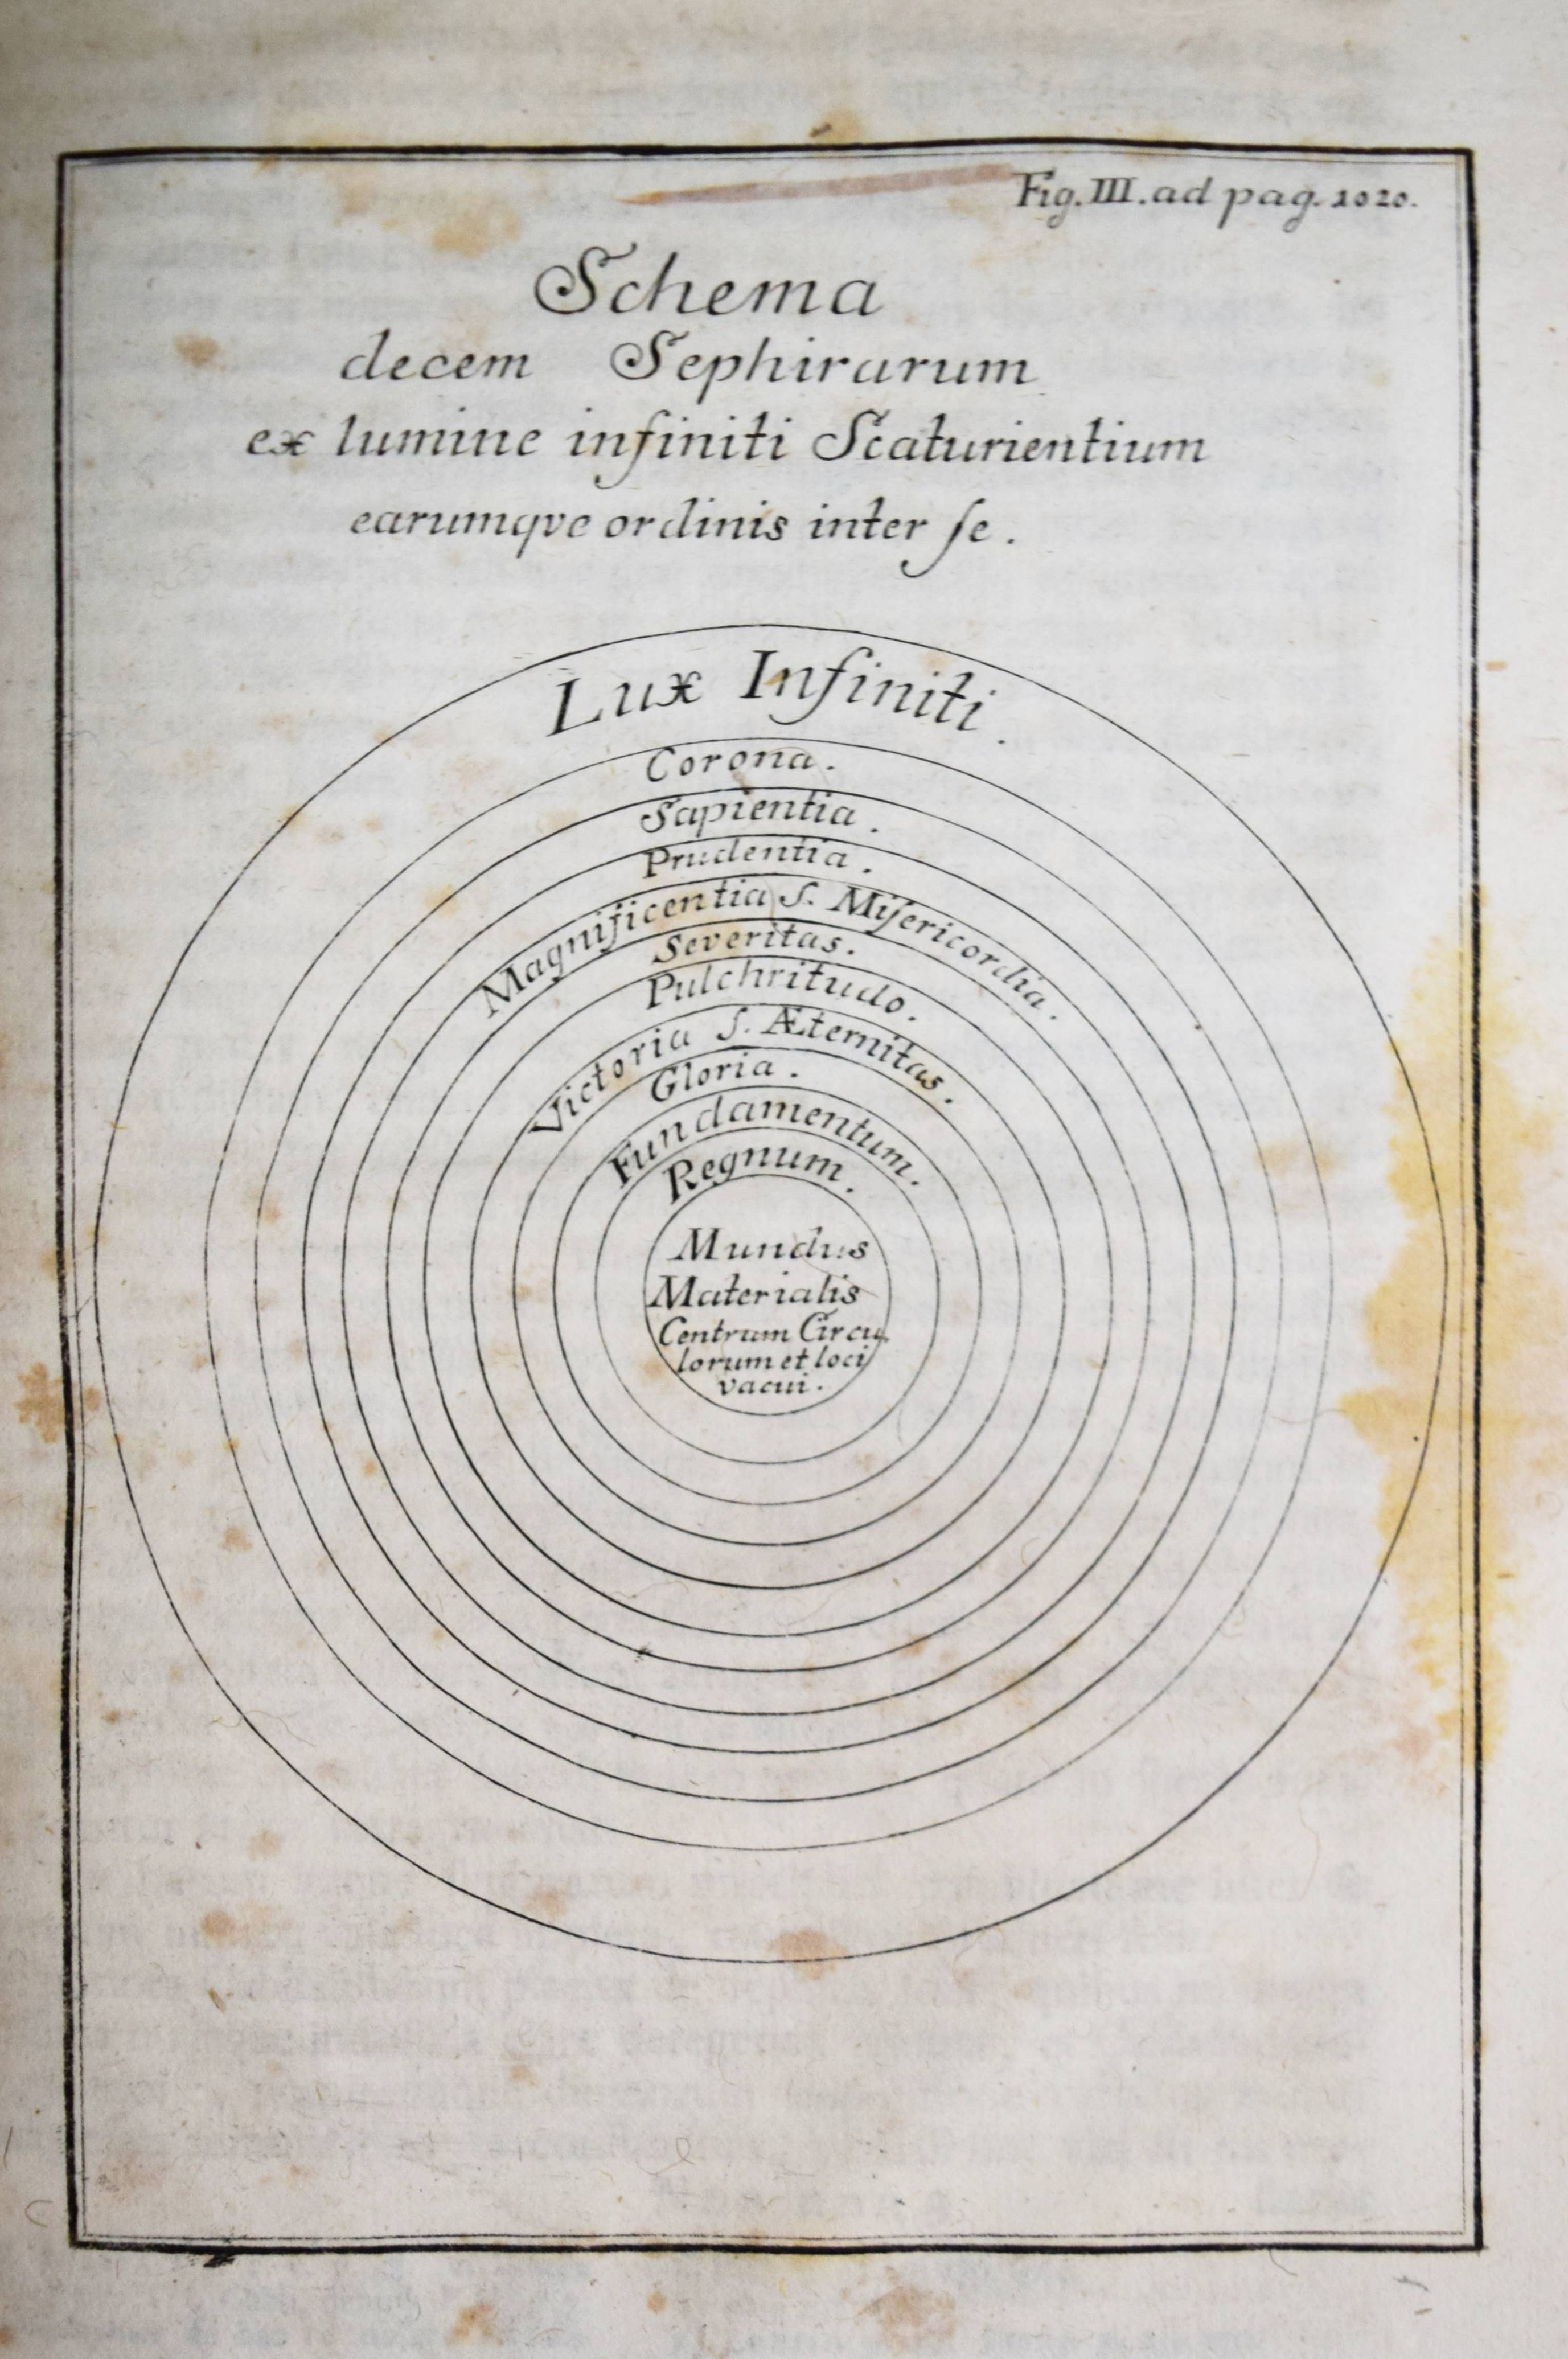 Fig. III. ad pag. 1020.
Schema
decem Sephirarum
ex lumine infiniti Scaturientium
earumqve ordinis inter ſe.
Lux Infiniti.
Corona.
Sapientia.
Prudentia.
Magnificentia S. Miſericordia.
Severitas.
Pulchritudo.
Victoria S. Æternitas.
Gloria.
Fundamentum.
Regnum.
Mundus
Materialis
Centrum Circu-
lorum et loci
vacui.